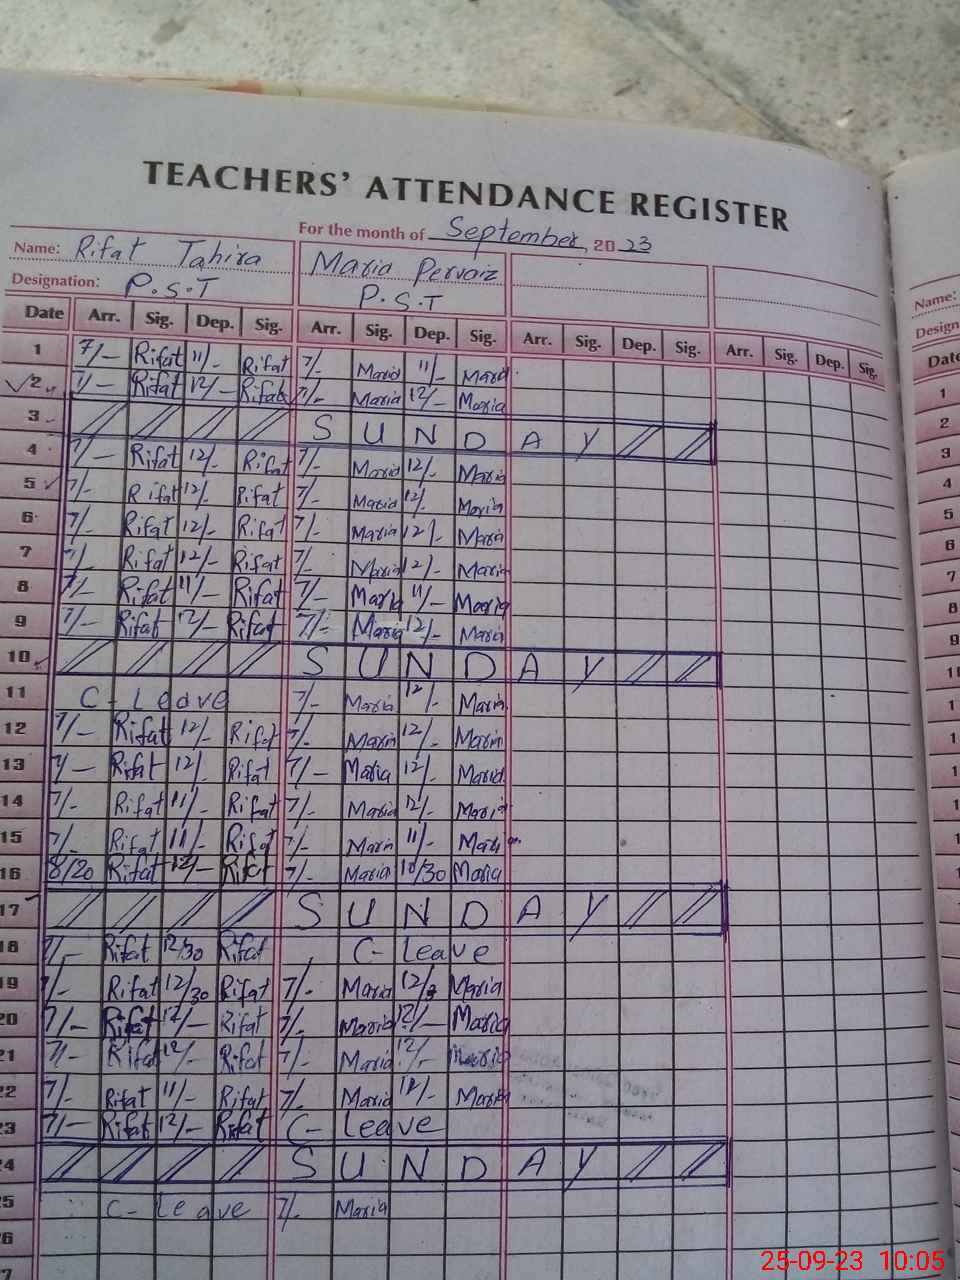 TEACHERS' ATTENDANCE REGISTER
For the month of September, 2023
Name: Rifat Tahira Maria Pervaiz
Designation: P.S.T P.S.T
Date Arr. Sig. Dep. Sig. Arr. Sig. Dep. Sig. Arr. Sig. Dep. Sig. Arr. Sig. Dep. Sig.
1 7/- Rifat 11/- Rifat 7/- Maria 11/- Maria
2 7/- Rifat 12/- Rifat 7/- Maria 12/- Maria
3 SUNDAY
4 7/- Rifat 12/- Rifat 7/- Maria 12/- Maria
5 7/- Rifat 12/- Rifat 7/- Maria 12/- Maria
6 7/- Rifat 12/- Rifat 7/- Maria 12/- Maria
7 7/- Rifat 12/- Rifat 7/- Maria 12/- Maria
8 7/- Rifat 11/- Rifat 7/- Maria 11/- Maria
9 7/- Rifat 12/- Rifat 7/- Maria 12/- Maria
10 SUNDAY
11 C-Leave 7/- Maria 12/- Maria
12 7/- Rifat 12/- Rifat 7/- Maria 12/- Maria
13 7/- Rifat 12/- Rifat 7/- Maria 12/- Maria
14 7/- Rifat 11/- Rifat 7/- Maria 12/- Maria
15 7/- Rifat 11/- Rifat 7/- Maria 11/- Maria
16 8/20 Rifat 12/- Rifat 7/- Maria 10/30 Maria
17 SUNDAY
18 7/- Rifat 12/30 Rifat C-Leave
19 7/- Rifat 12/30 Rifat 7/- Maria Maria
20 7/- Rifat 12/- Rifat 7/- Maria 12/- Maria
21 7/- Rifat 12/- Rifat 7/- Maria 12/- Maria
22 7/- Rifat 11/- Rifat 7/- Maria Maria
23 7/- Rifat 12/- Rifat C-Leave
24 SUNDAY
25 C-Leave 7/- Maria
26
Name:
Date
1
2
3
4
5
6
7
8
9
25-09-23 10:05